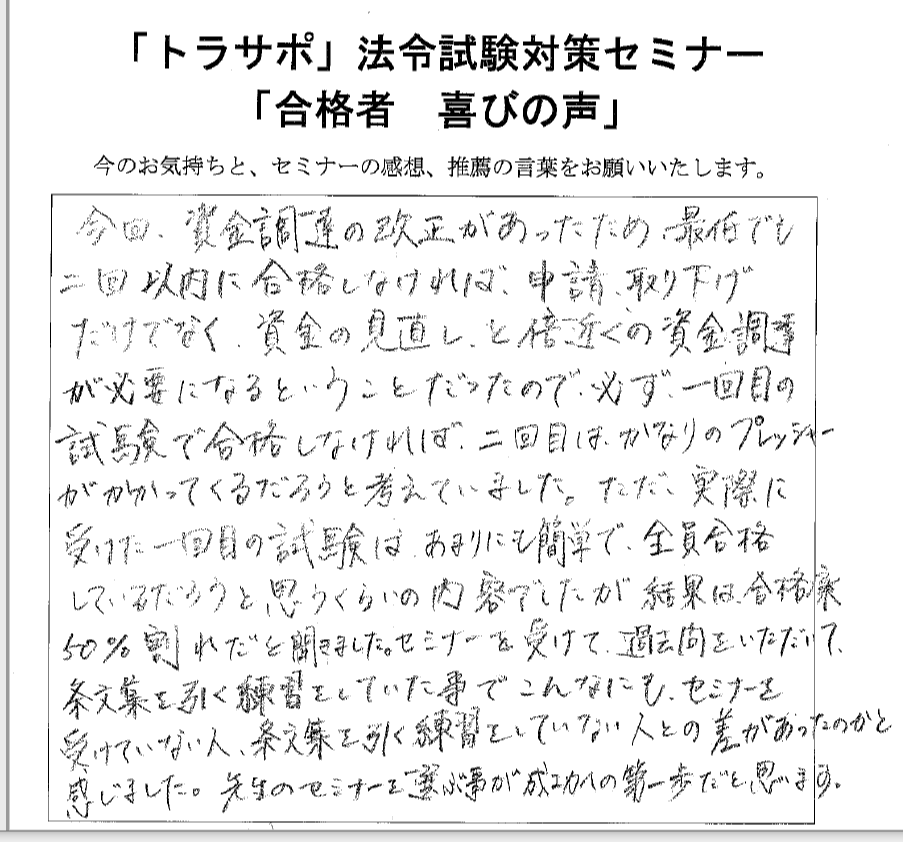 「トラサポ」法令試験対策セミナー
「合格者　喜びの声」
今のお気持ちと、セミナーの感想、推薦の言葉をお願いいたします。
今回、資金調達の改正があったため、最低でも
二回以内に合格しなければ、申請、取り下げ
だけでなく、資金の見直し、と倍近くの資金調達
が必要になるということだったので、必ず、一回目の
試験で合格しなければ、二回目は、かなりのプレッシャー
がかかってくるだろうと考えていました。ただ、実際に
受けた一回目の試験は、あまりにも簡単で、全員合格
しているだろうと思うくらいの内容でしたが結果は、合格率
50%割れだと聞きました。セミナーを受けて、過去問をいただいて、
条文集を引く練習をしていた事でこんなにも、セミナーを
受けていない人、条文集を引く練習をしていない人との差があったのかと
感じました。先生のセミナーを選ぶ事が成功への第一歩だと思います。